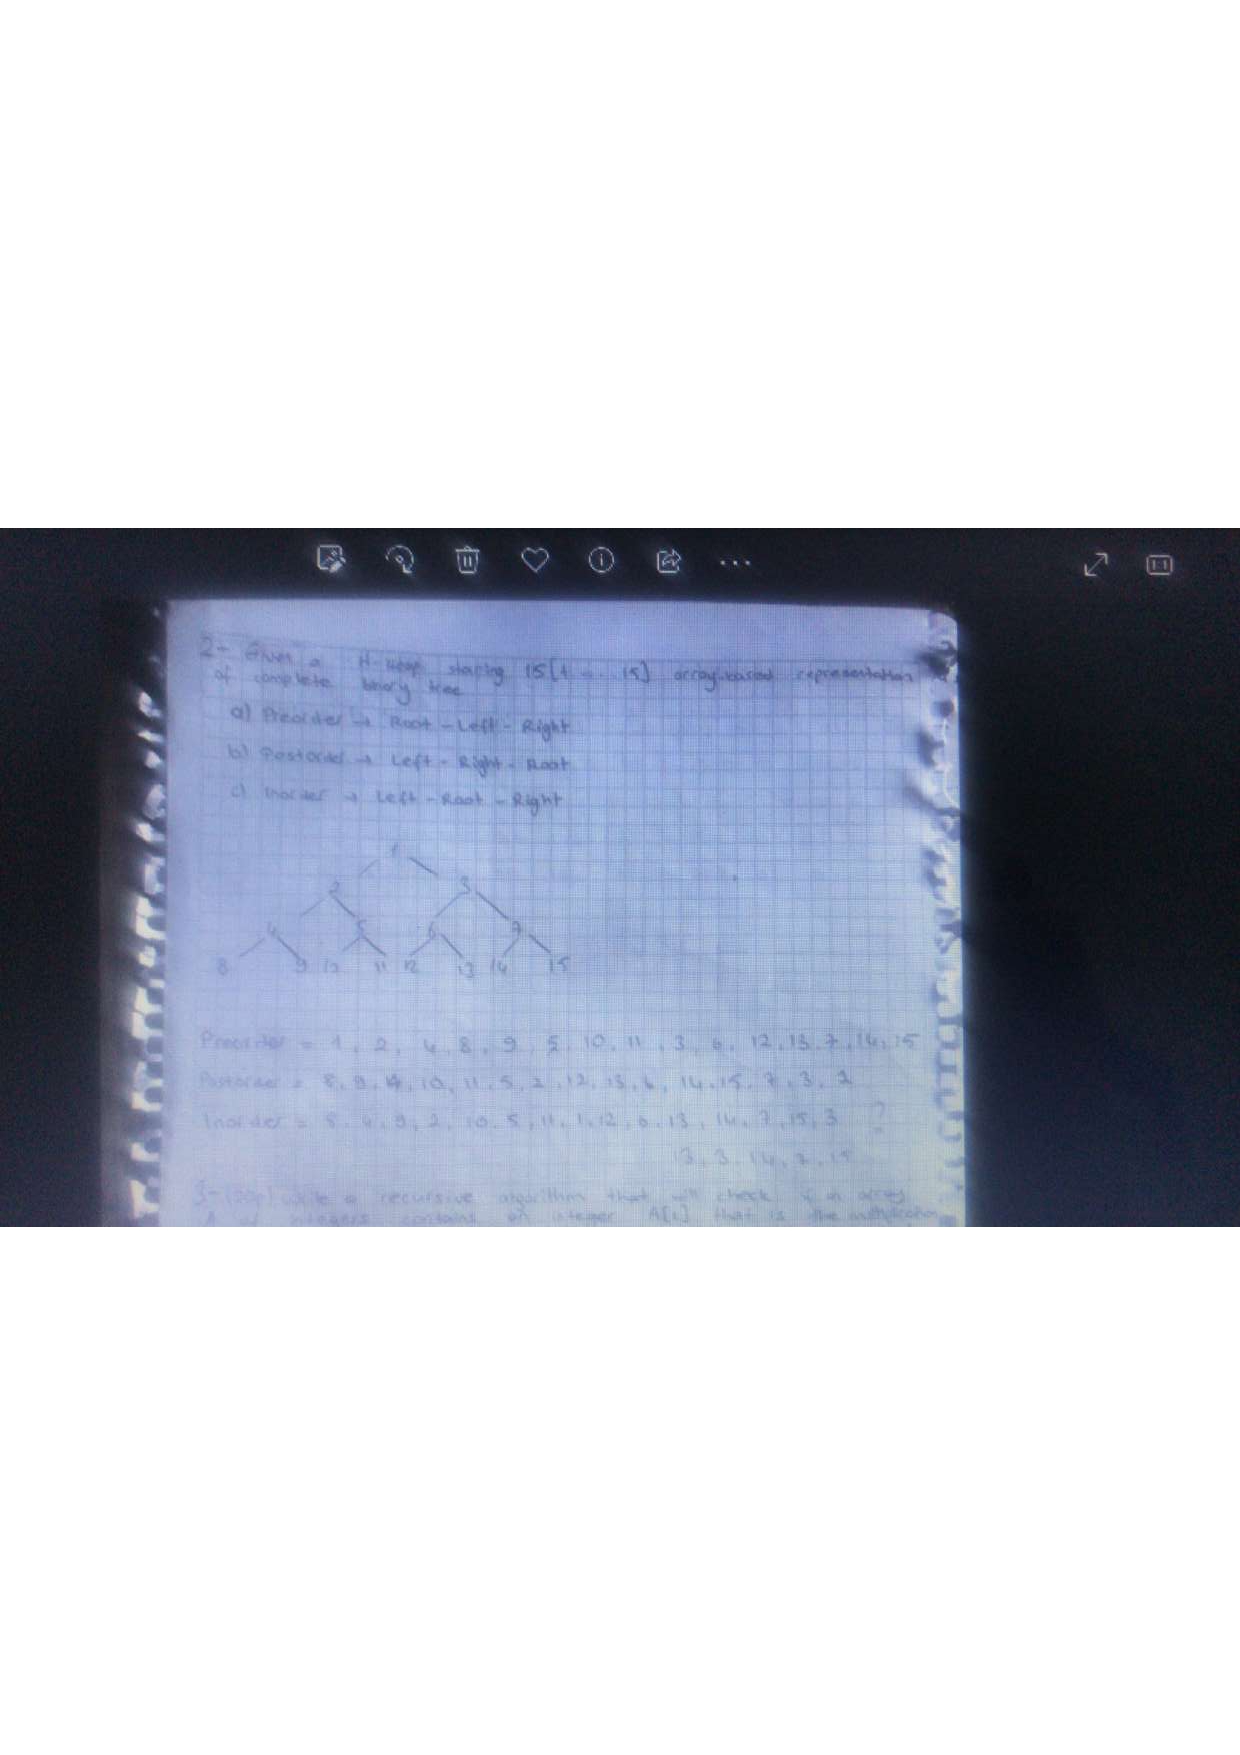 2- Given a H-heap storing 15[1 - . . 15] array-based representation
of complete binary tree
a) Preorder → Root - Left - Right
b) Postorder → Left - Right - Root
c) Inorder → Left - Root - Right
1
2 3
4 5 6 7
8 9 10 11 12 13 14 15
Preorder = 1, 2, 4, 8, 9, 5, 10, 11, 3, 6, 12, 13, 7, 14, 15
Postorder = 8, 9, 4, 10, 11, 5, 2, 12, 13, 6, 14, 15, 7, 3, 1
Inorder = 8, 4, 9, 2, 10, 5, 11, 1, 12, 6, 13, 14, 7, 15, 3 ?
13, 3, 14, 7, 15
3- (20p) Write a recursive algorithm that will check if an array
A of integers contains an integer A[i] that is the multiplication